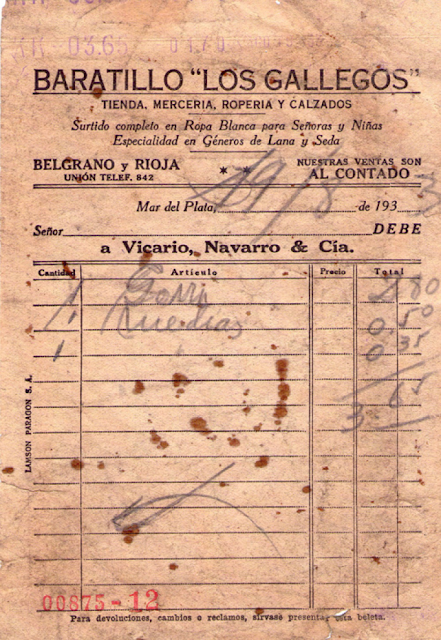 03.65
BARATILLO "LOS GALLEGOS"
TIENDA, MERCERIA, ROPERIA Y CALZADOS
Surtido completo en Ropa Blanca para Señoras y Niñas
Especialidad en Géneros de Lana y Seda
BELGRANO y RIOJA
UNIÓN TELEF. 842
* *
NUESTRAS VENTAS SON
AL CONTADO
Mar del Plata, 19/8 de 193
Señor DEBE
a Vicario, Navarro & Cía.
Cantidad Artículo Precio Total
1 80
1 medias 0 50
1 0 35
3 65
LAMSON PARAGON S. A.
00875-12
Para devoluciones, cambios o reclamos, sírvase presentar esta boleta.